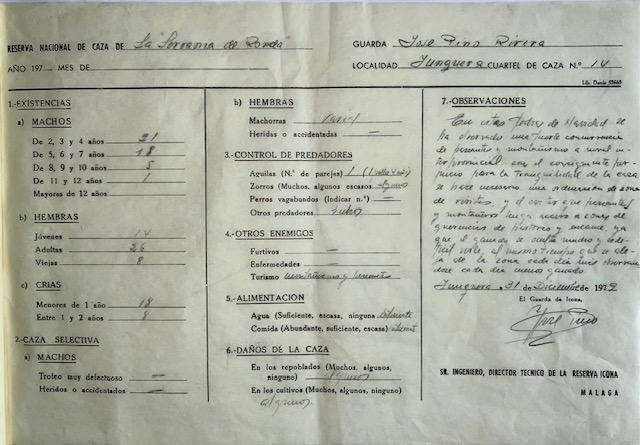 RESERVA NACIONAL DE CAZA DE La "Serrania de Ronda"
AÑO 197 MES DE
GUARDA Jose Pino Rivera
LOCALIDAD Junquera CUARTEL DE CAZA N.º 14
1.-EXISTENCIAS
a) MACHOS
De 2, 3 y 4 años 21
De 5, 6 y 7 años 18
De 8, 9 y 10 años 5
De 11 y 12 años 1
Mayores de 12 años
b) HEMBRAS
Jóvenes 14
Adultas 26
Viejas 8
c) CRIAS
Menores de 1 año 18
Entre 1 y 2 años 8
2.-CAZA SELECTIVA
a) MACHOS
Trofeo muy defectuoso —
Heridos o accidentados —
b) HEMBRAS
Machorras varias
Heridas o accidentadas —
3.-CONTROL DE PREDADORES
Aguilas (N.º de parejas) 1
Zorros (Muchos, algunos escasos) algunos
Perros vagabundos (Indicar n.º) —
Otros predadores
4.-OTROS ENEMIGOS
Furtivos —
Enfermedades —
Turismo montañismo y
5.-ALIMENTACION
Agua (Suficiente, escasa, ninguna)
Comida (Abundante, suficiente, escasa)
6.-DAÑOS DE LA CAZA
En los repoblados (Muchos, algunos,
ninguno) algunos
En los cultivos (Muchos, algunos, ninguno)
algunos.
7.-OBSERVACIONES
En estas fiestas de Navidad se
ha observado una fuerte concurrencia
de y montañismo a nivel in-
terprovincial, con el consiguiente per-
juicio para la tranquilidad de la caza
se hace necesario una ordenacion de zona
de visitas, y el evitar que
y montañeros tenga acceso a zonas de
querencias de pastoreo y encame, ya
que el ganado se oculta mucho y
al mismo tiempo que se ale-
ja de la zona cada dia mas observan
dose cada dia menos ganado.
Junquera 31 Diciembre de 1972
El Guarda de Icona,
Jose Pino
SR. INGENIERO, DIRECTOR TECNICO DE LA RESERVA ICONA
MALAGA